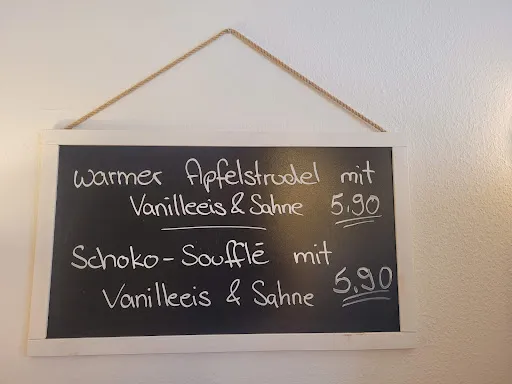 warmer Apfelstrudel mit
Vanilleeis & Sahne 5,90
Schoko-Soufflé mit
Vanilleeis & Sahne 5,90